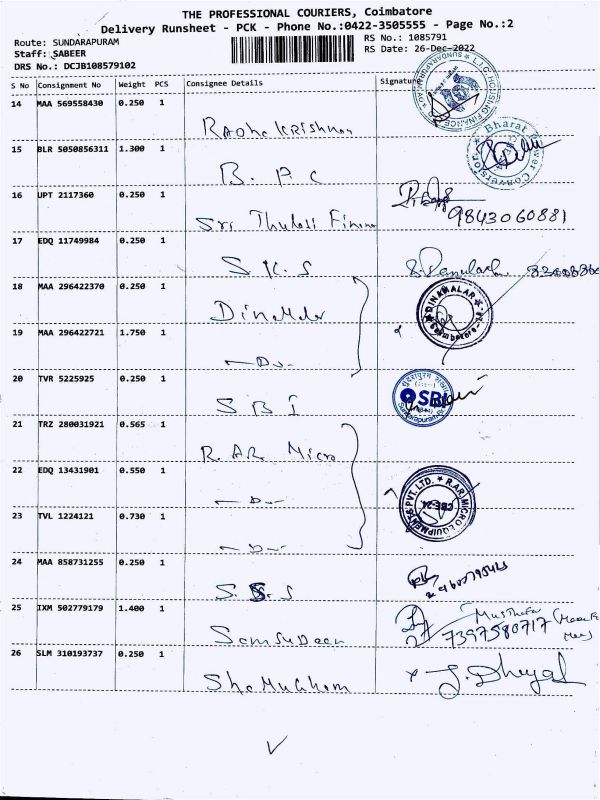 THE PROFESSIONAL COURIERS, Coimbatore
Delivery Runsheet - PCK - Phone No.:0422-3505555 - Page No.:2
Route: SUNDARAPURAM
RS No.: 1085791
Staff: SABEER
RS Date: 26-Dec-2022
DRS No.: DCJB108579102
S No Consignment No Weight PCS Consignee Details Signature
14 MAA 569558430 0.250 1
Radha Krishnan
L.I.C. HOUSING FINANCE
15 BLR 5050856311 1.300 1
B. P. C
Bharat Power Conversion
16 UPT 2117360 0.250 1
Sri Thulasi
9843060881
17 EDQ 11749984 0.250 1
S. K. S
18 MAA 296422370 0.250 1
DINAMALAR
19 MAA 296422721 1.750 1
— Do —
20 TVR 5225925 0.250 1
S B I
SBI
21 TRZ 280031921 0.565 1
R. AR. Micro
22 EDQ 13431901 0.550 1
— Do —
R.AR MICRO EQUIPMENTS PVT. LTD.
CBE-24
23 TVL 1224121 0.730 1
— Do —
24 MAA 858731255 0.250 1
S. S. S
25 IXM 502779179 1.400 1
Samsudeen
Musthafa
7397580717
26 SLM 310193737 0.250 1